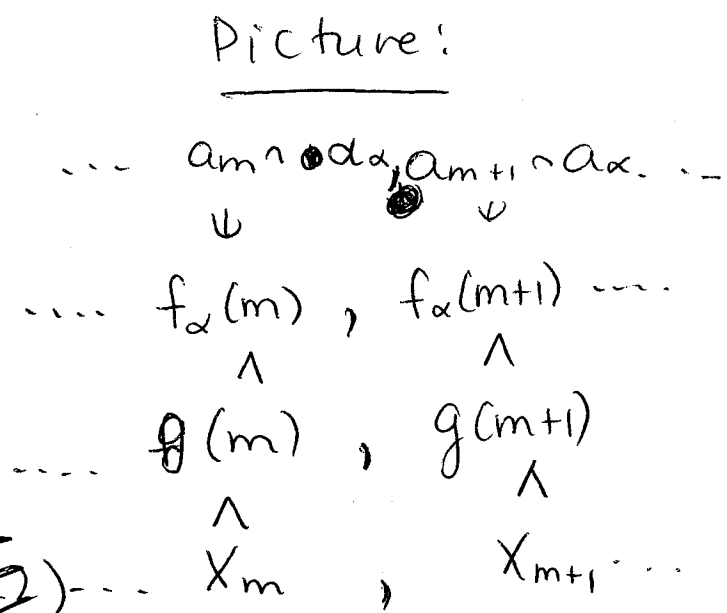 Picture:
... aₘ ∩ aα, aₘ₊₁ ∩ aα. ..
ψ ψ
.... fα(m) , fα(m+1) ....
∧ ∧
.... g(m) , g(m+1)
∧ ∧
2)--.. Xₘ , Xₘ₊₁ ...